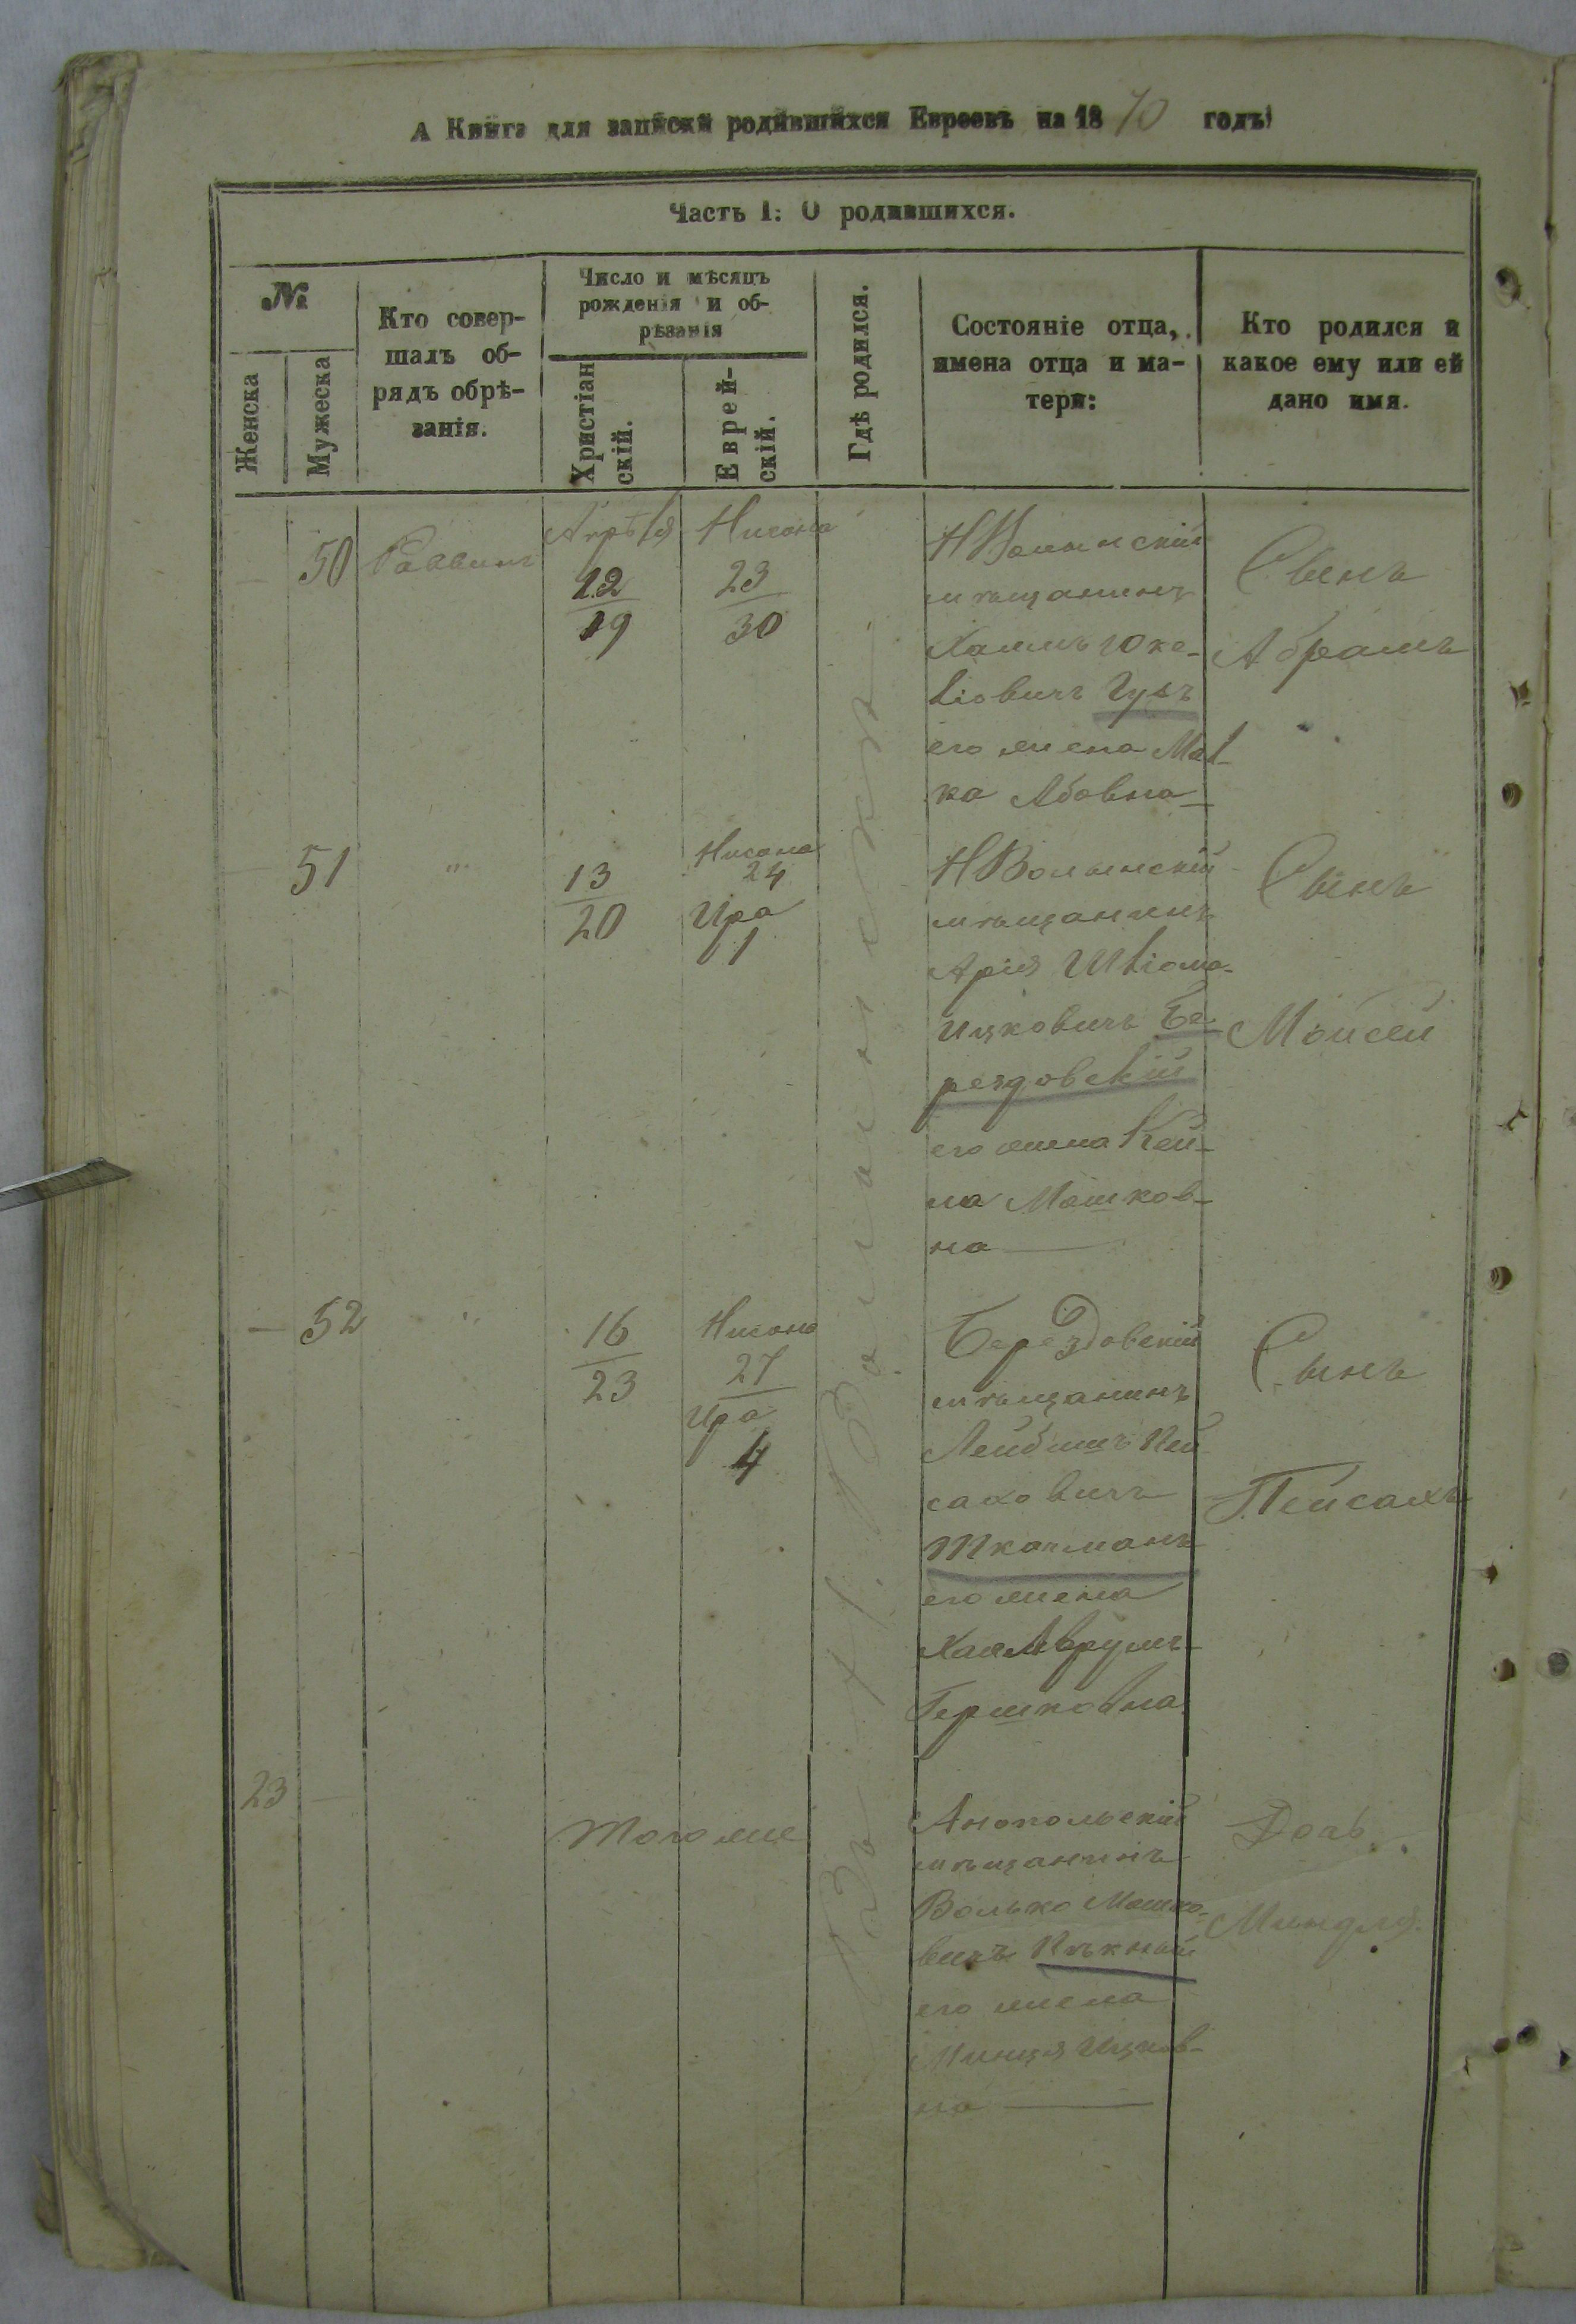 А Книга для записки родившихся Евреевъ на 1870 годъ
Часть I: О родившихся.
№
Женска
Мужеска
Кто совер-
шалъ об-
рядъ обрѣ-
занія.
Число и мѣсяцъ
рожденія и об-
рѣзанія
Христіан
скій.
Еврей-
скій.
Гдѣ родился.
Состояніе отца,
имена отца и ма-
тери:
Кто родился и
какое ему или ей
дано имя.
Въ Н. Волынскѣ
— 50 Раввинъ
Апрѣля
12
19
Нисана
23
30
НВолынскій
мѣщанинъ
Хаимъ Юке-
ліовичъ Гузъ
его жена Мал-
ка Абовна
Сынъ
Абрамъ
51 "
13
20
Нисана
24
Ира
1
НВолынскій
мѣщанинъ
Арія Шліома
Ицковичъ Бе
рездовскій
его жена Кей-
ла Мошков-
на
Сынъ
Мойсей
— 52 "
16
23
Нисана
27
Ира
4
Берездовскій
мѣщанинъ
Лейбишъ Пей
саховичъ
Ткачманъ
его жена
Хая Аврумъ-
Гершковна
Сынъ
Пейсахъ
23 —
Того же
Анопольскій
мѣщанинъ
Волько Мошко-
вичъ
его жена
Ицков-
на
Дочь
Миндля